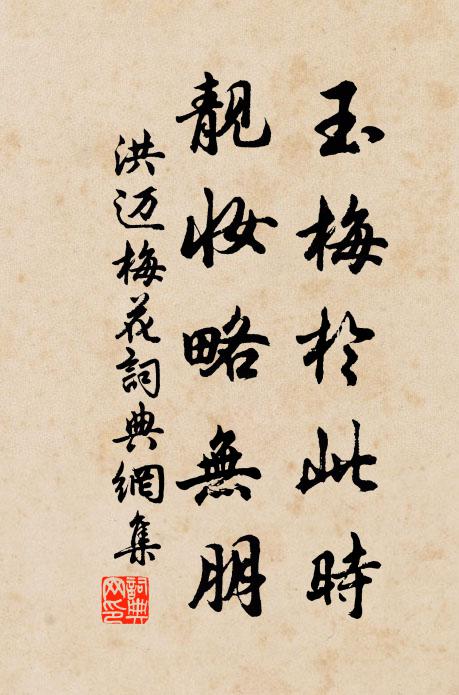 玉梅於此時
靚妝略無朋
洪迈梅花詞典網集
詞典網印